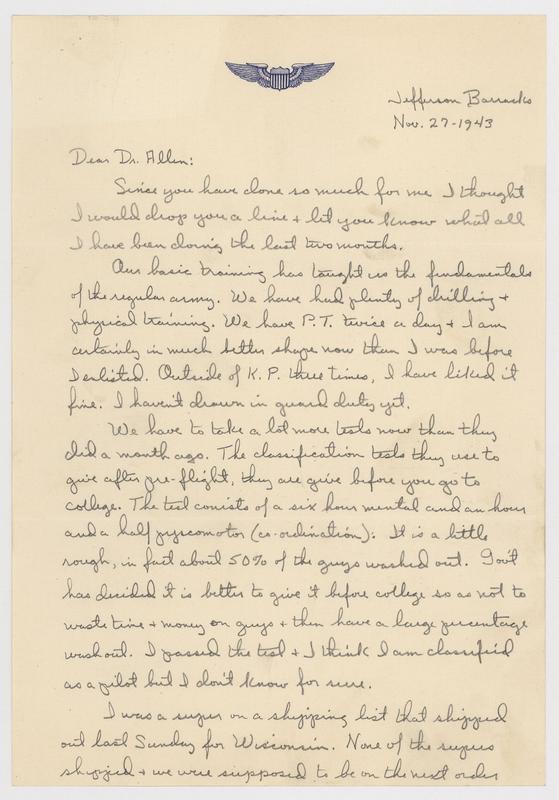 Jefferson Barracks
Nov. 27-1943
Dear Dr. Allen:
Since you have done so much for me I thought
I would drop you a line + let you know what all
I have been doing the last two months.
Our basic training has taught us the fundamentals
of the regular army. We have had plenty of drilling +
physical training. We have P.T. twice a day + I am
certainly in much better shape now than I was before
I enlisted. Outside of K.P. three times, I have liked it
fine. I haven't drawn in guard duty yet.
We have to take a lot more tests now than they
did a month ago. The classification tests they use to
give after pre-flight, they are give before you go to
college. The test conists of a six hour mental and an hour
and a half pyscomotor (co-ordination). It is a little
rough, in fact about 50% of the guys washed out. Gov't
has decided it is better to give it before college so as not to
waste time + money on guys + then have a large percentage
wash out. I passed the test + I think I am classified
as a pilot but I don't know for sure.
I was a super on a shipping list that shipped
out last Sunday for Wisconsin. None of the supers
shipped + we were supposed to be on the next order